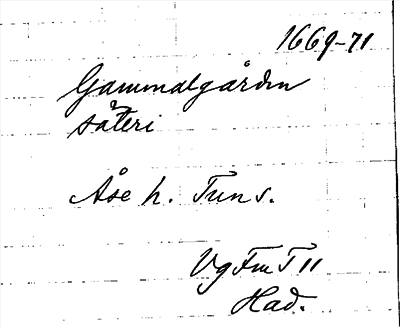 1669-71
Gammalgården
säteri
Åse h. Tuns.
Vg Fm T 11
Had.